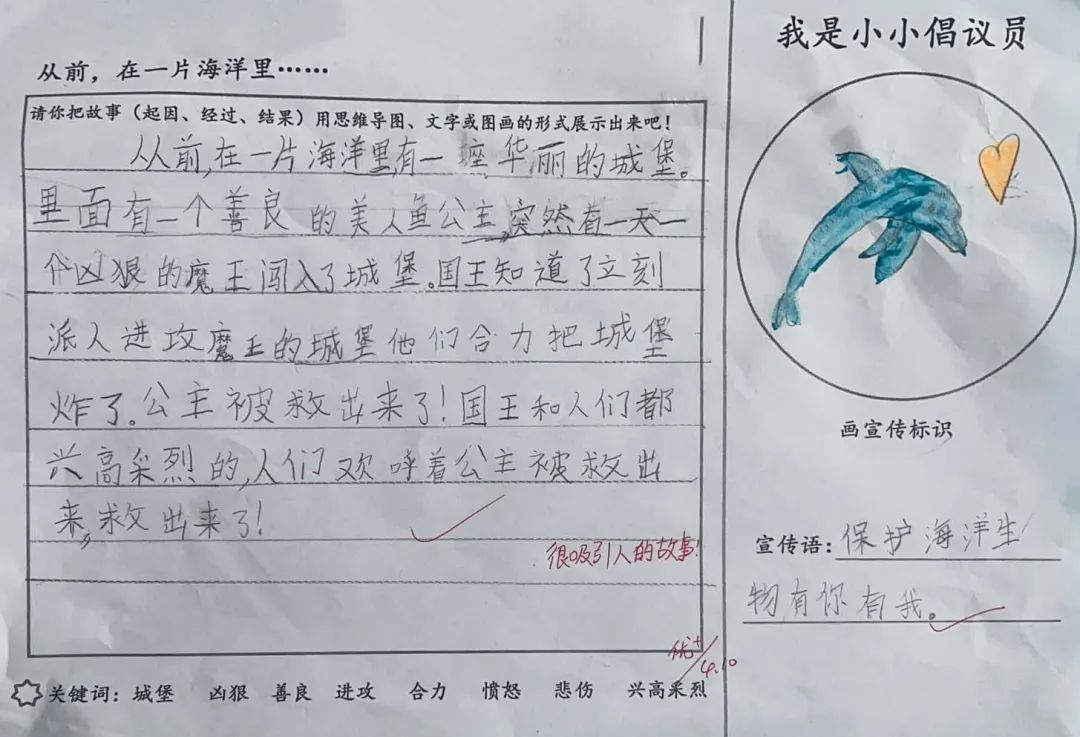 从前，在一片海洋里……
请你把故事（起因、经过、结果）用思维导图、文字或图画的形式展示出来吧！
从前,在一片海洋里,有一座华丽的城堡。
里面有一个善良的美人鱼公主,突然有一天一
个凶狠的魔王闯入了城堡。国王知道了立刻
派人进攻魔王的城堡他们合力把城堡
炸了。公主被救出来了!国王和人们都
兴高采烈的,人们欢呼着公主被救出
来,救出来了!
很吸引人的故事!
优+
4.10
关键词：城堡 凶狠 善良 进攻 合力 愤怒 悲伤 兴高采烈
我是小小倡议员
画宣传标识
宣传语：保护海洋生
物有你有我。